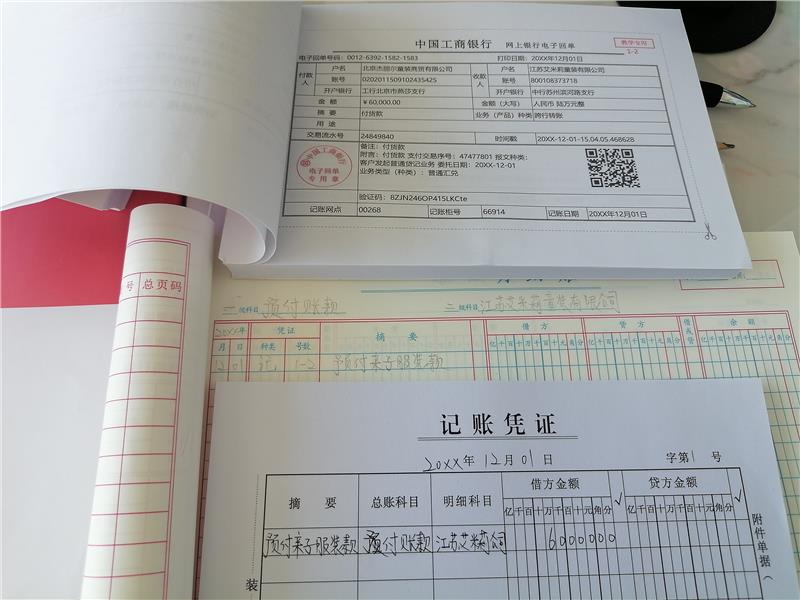 中国工商银行 网上银行电子回单
教学专用
1-2
电子回单号码: 0012-6392-1582-1583 打印日期: 20XX年12月01日
付款人 户名 北京杰丽尔童装商贸有限公司 收款人 户名 江苏艾米莉童装有限公司
账号 0202011509102435425 账号 800108373718
开户银行 工行北京市燕莎支行 开户银行 中行苏州滨河路支行
金额 ¥60,000.00 金额(大写) 人民币 陆万元整
摘要 付货款 业务(产品)种类 跨行转账
用途
交易流水号 24849840 时间戳 20XX-12-01-15.04.05.468628
备注: 付货款
附言: 付货款 支付交易序号: 47477801 报文种类:
客户发起普通贷记业务 委托日期: 20XX-12-01
业务类型(种类): 普通汇兑
中国工商银行
电子回单
专用章
验证码: 8ZJN246OP415LKCte
记账网点 00268 记账柜号 66914 记账日期 20XX年12月01日
号 总页码
二级科目 预付账款 三级科目 江苏艾米莉童装有限公司
20XX年 凭证 摘要 借方 贷方 借或贷 余额
月 日 种类 号数 亿千百十万千百十元角分 亿千百十万千百十元角分 亿千百十万千百十元角分
12 01 记 1-2 预付亲子服装款
记账凭证
20XX年 12月 01日 字第1号
摘要 总账科目 明细科目 借方金额 √ 贷方金额 √
亿千百十万千百十元角分 亿千百十万千百十元角分
预付亲子服装款 预付账款 江苏艾米莉公司 6000000
附件单据(
装